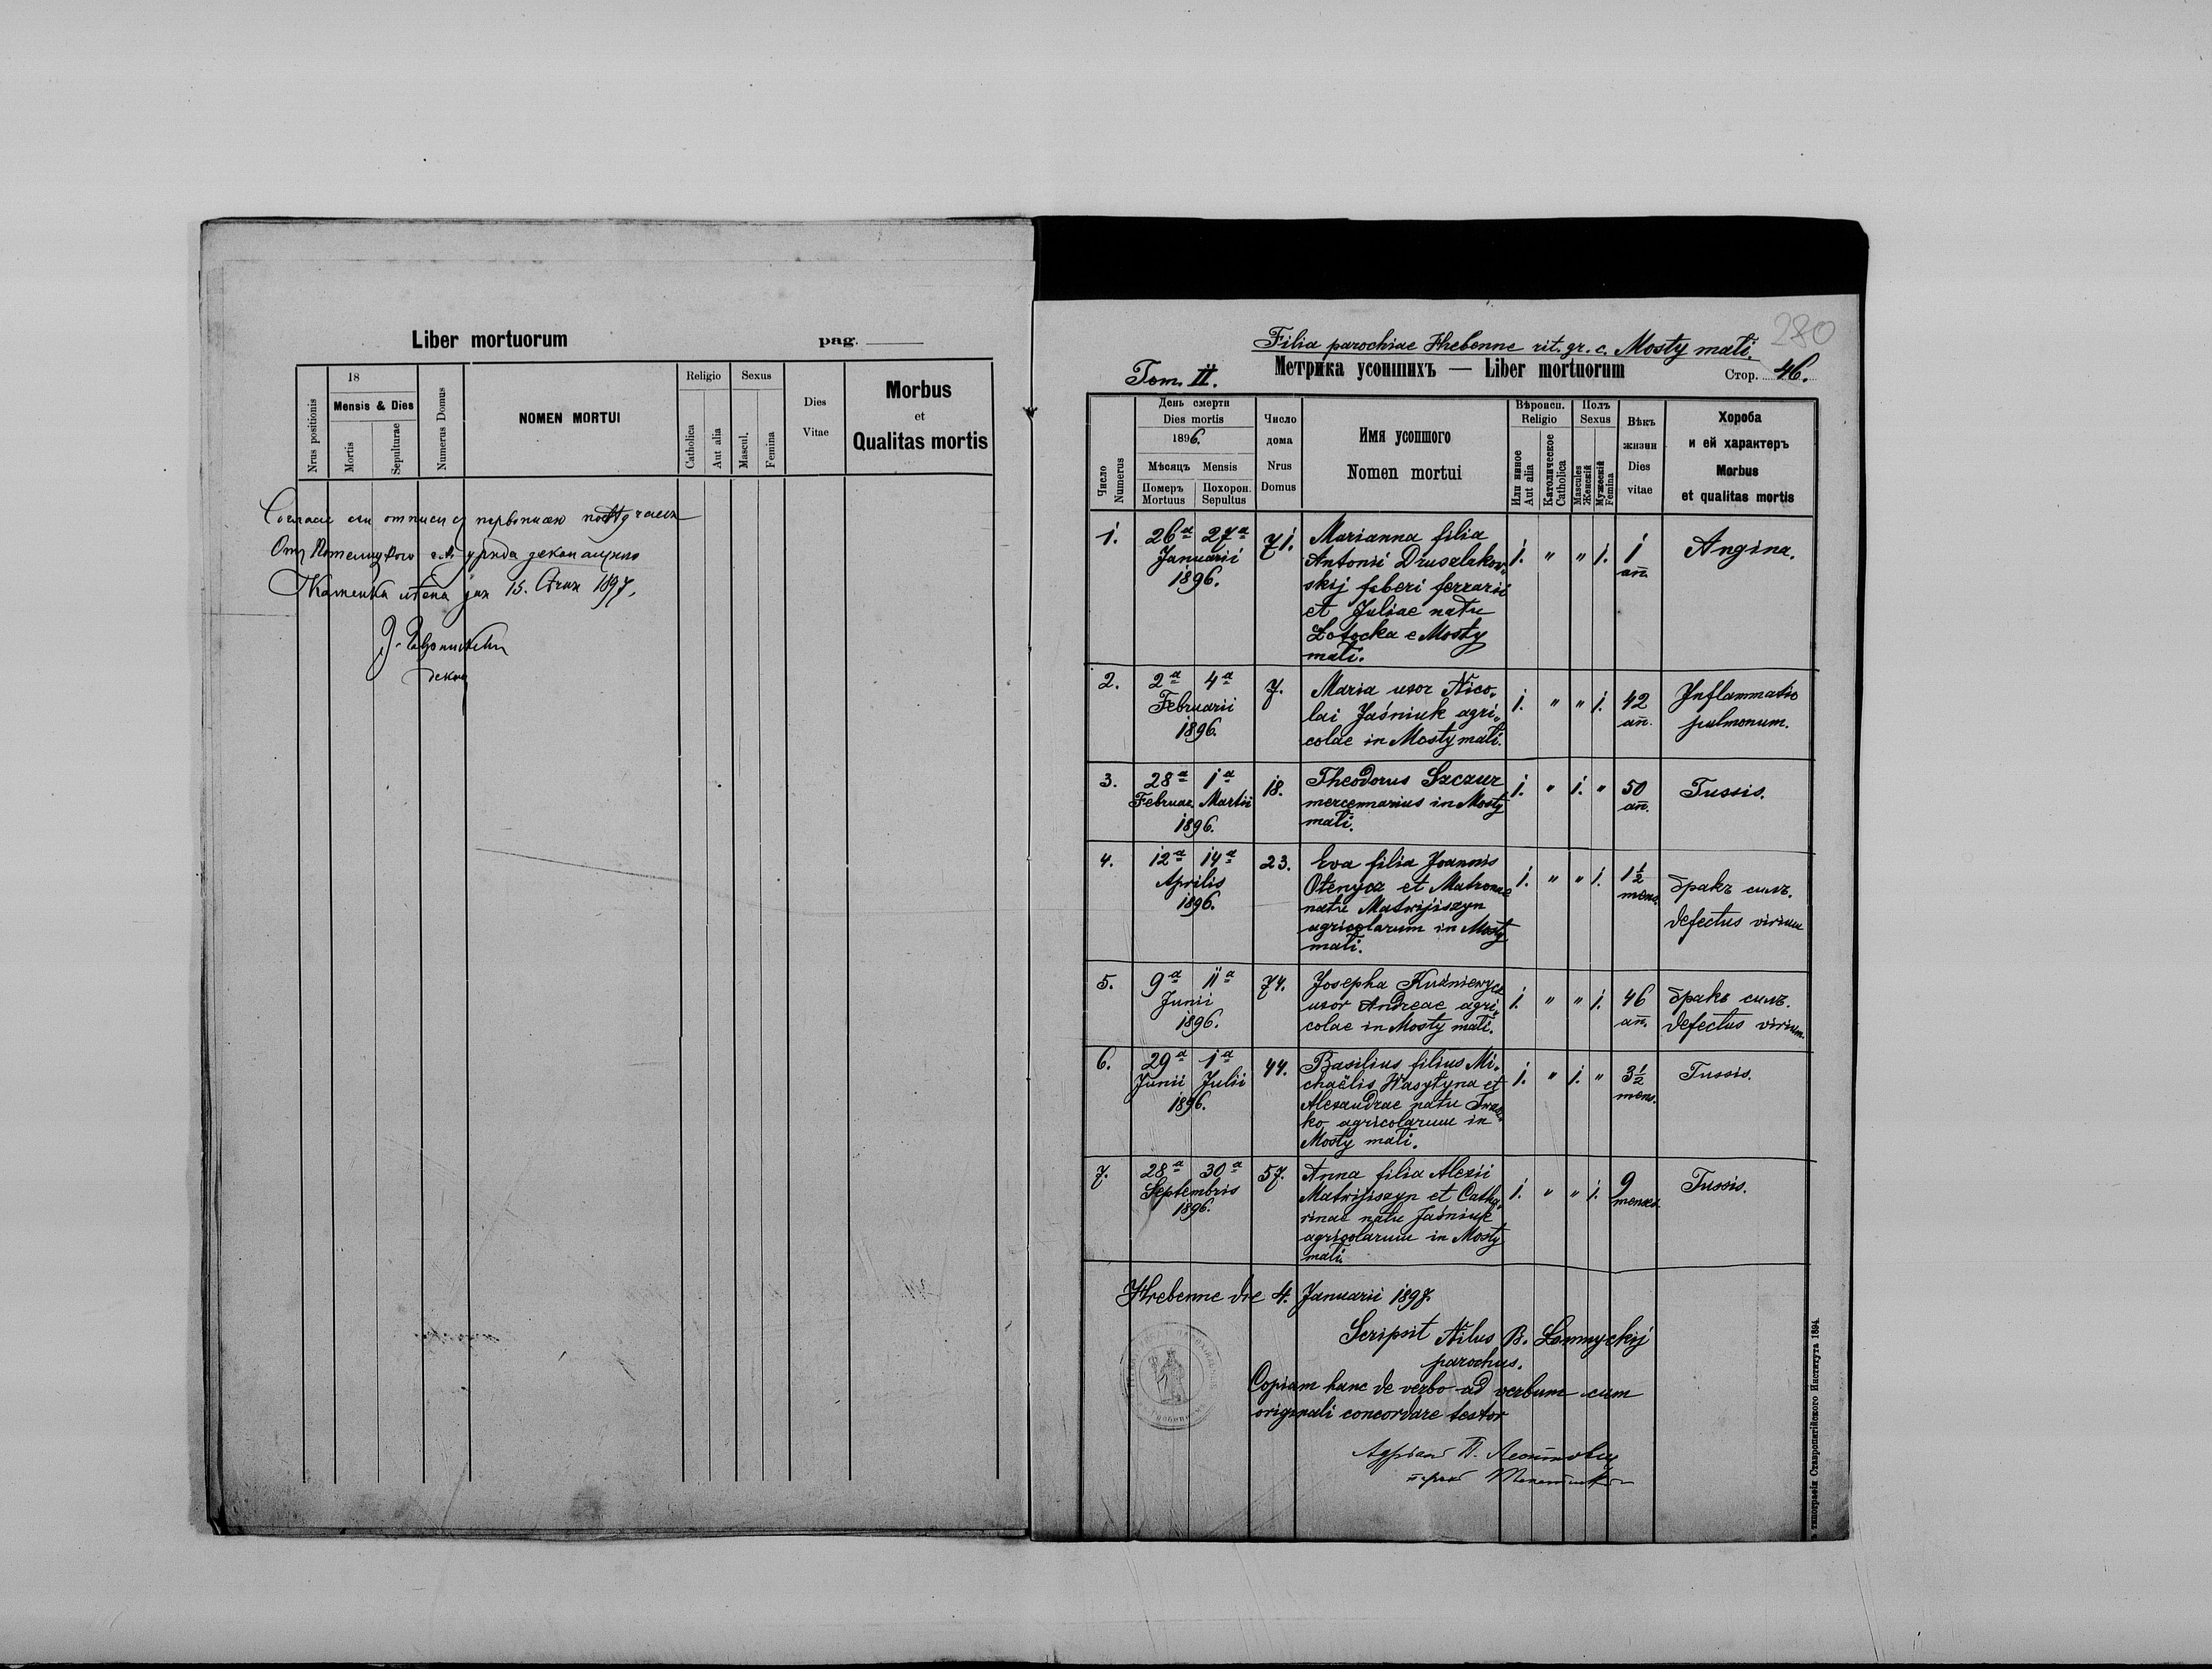 Liber mortuorum pag.
Nrus positionis
18
Mensis & Dies
Mortis
Sepulturae
Numerus Domus
NOMEN MORTUI
Religio
Catholica
Aut alia
Sexus
Mascul.
Femina
Dies
Vitae
Morbus
et
Qualitas mortis
15. 1897.
280
Filia parochiae Hrebenne rit. gr. c. Mosty mali.
Tom. II. Метрика усопшихъ — Liber mortuorum Стор. 46.
Число
Numerus
День смерти
Dies mortis
1896.
Мѣсяць Mensis
Померъ Похорон.
Mortuus Sepultus
Число
дома
Nrus
Domus
Имя усопшого
Nomen mortui
Вѣроиси.
Religio
Или инное
Aut alia
Католическое
Catholica
Полъ
Sexus
Mascules
Женскій
Мужескій
Femina
Вѣкъ
жизни
Dies
vitae
Хороба
и ей характеръ
Morbus
et qualitas mortis
1. 26a 27a 71. Marianna filia 1. " " 1. 1 Angina.
Januarii Antonii Druszlakov- añ.
1896. skij fabri ferrarii
et Juliae natu
Łotocka e Mosty
mali.
2. 2a 4a 7. Maria uxor Nico- 1. " " 1. 42 Inflammatio
Februarii lai Jaśniuk agri- añ. pulmonum.
1896. colae in Mosty mali.
3. 28a 1a 18. Theodorus Szczur 1. " 1. " 50 Tussis.
Februar. Martii mercennarius in Mosty añ.
1896. mali.
4. 12a 14a 23. Eva filia Joannis 1. " " 1. 1½ бракъ силъ.
Aprilis et Matronae mens. defectus virium
1896. natu Matwijiszyn
agricolarum in Mosty
mali.
5. 9a 11a 74. Josepha Kuźniewycz 1. " " 1. 46 бракъ силъ.
Junii uxor Andreae agri- añ. defectus virium.
1896. colae in Mosty mali.
6. 29a 1a 44. Basilius filius Mi- 1. " 1. " 3½ Tussis.
Junii Julii chaëlis Wasytyna et mens.
1896. Alexandrae natu
ko agricolarum in
Mosty mali.
7. 28a 30a 57. Anna filia Alexii 1. " " 1. 9 Tussis.
Septembris Matwijiszyn et Catha-
1896. rinae natu Jaśniuk
agricolarum in Mosty
mali.
Hrebenne die 4. Januarii 1897.
Scripsit Nilus B. Łomnyckij
parochus.
Copiam hanc de verbo ad verbum cum
originali concordare testor
типографія Ставропигійского Института 1894.